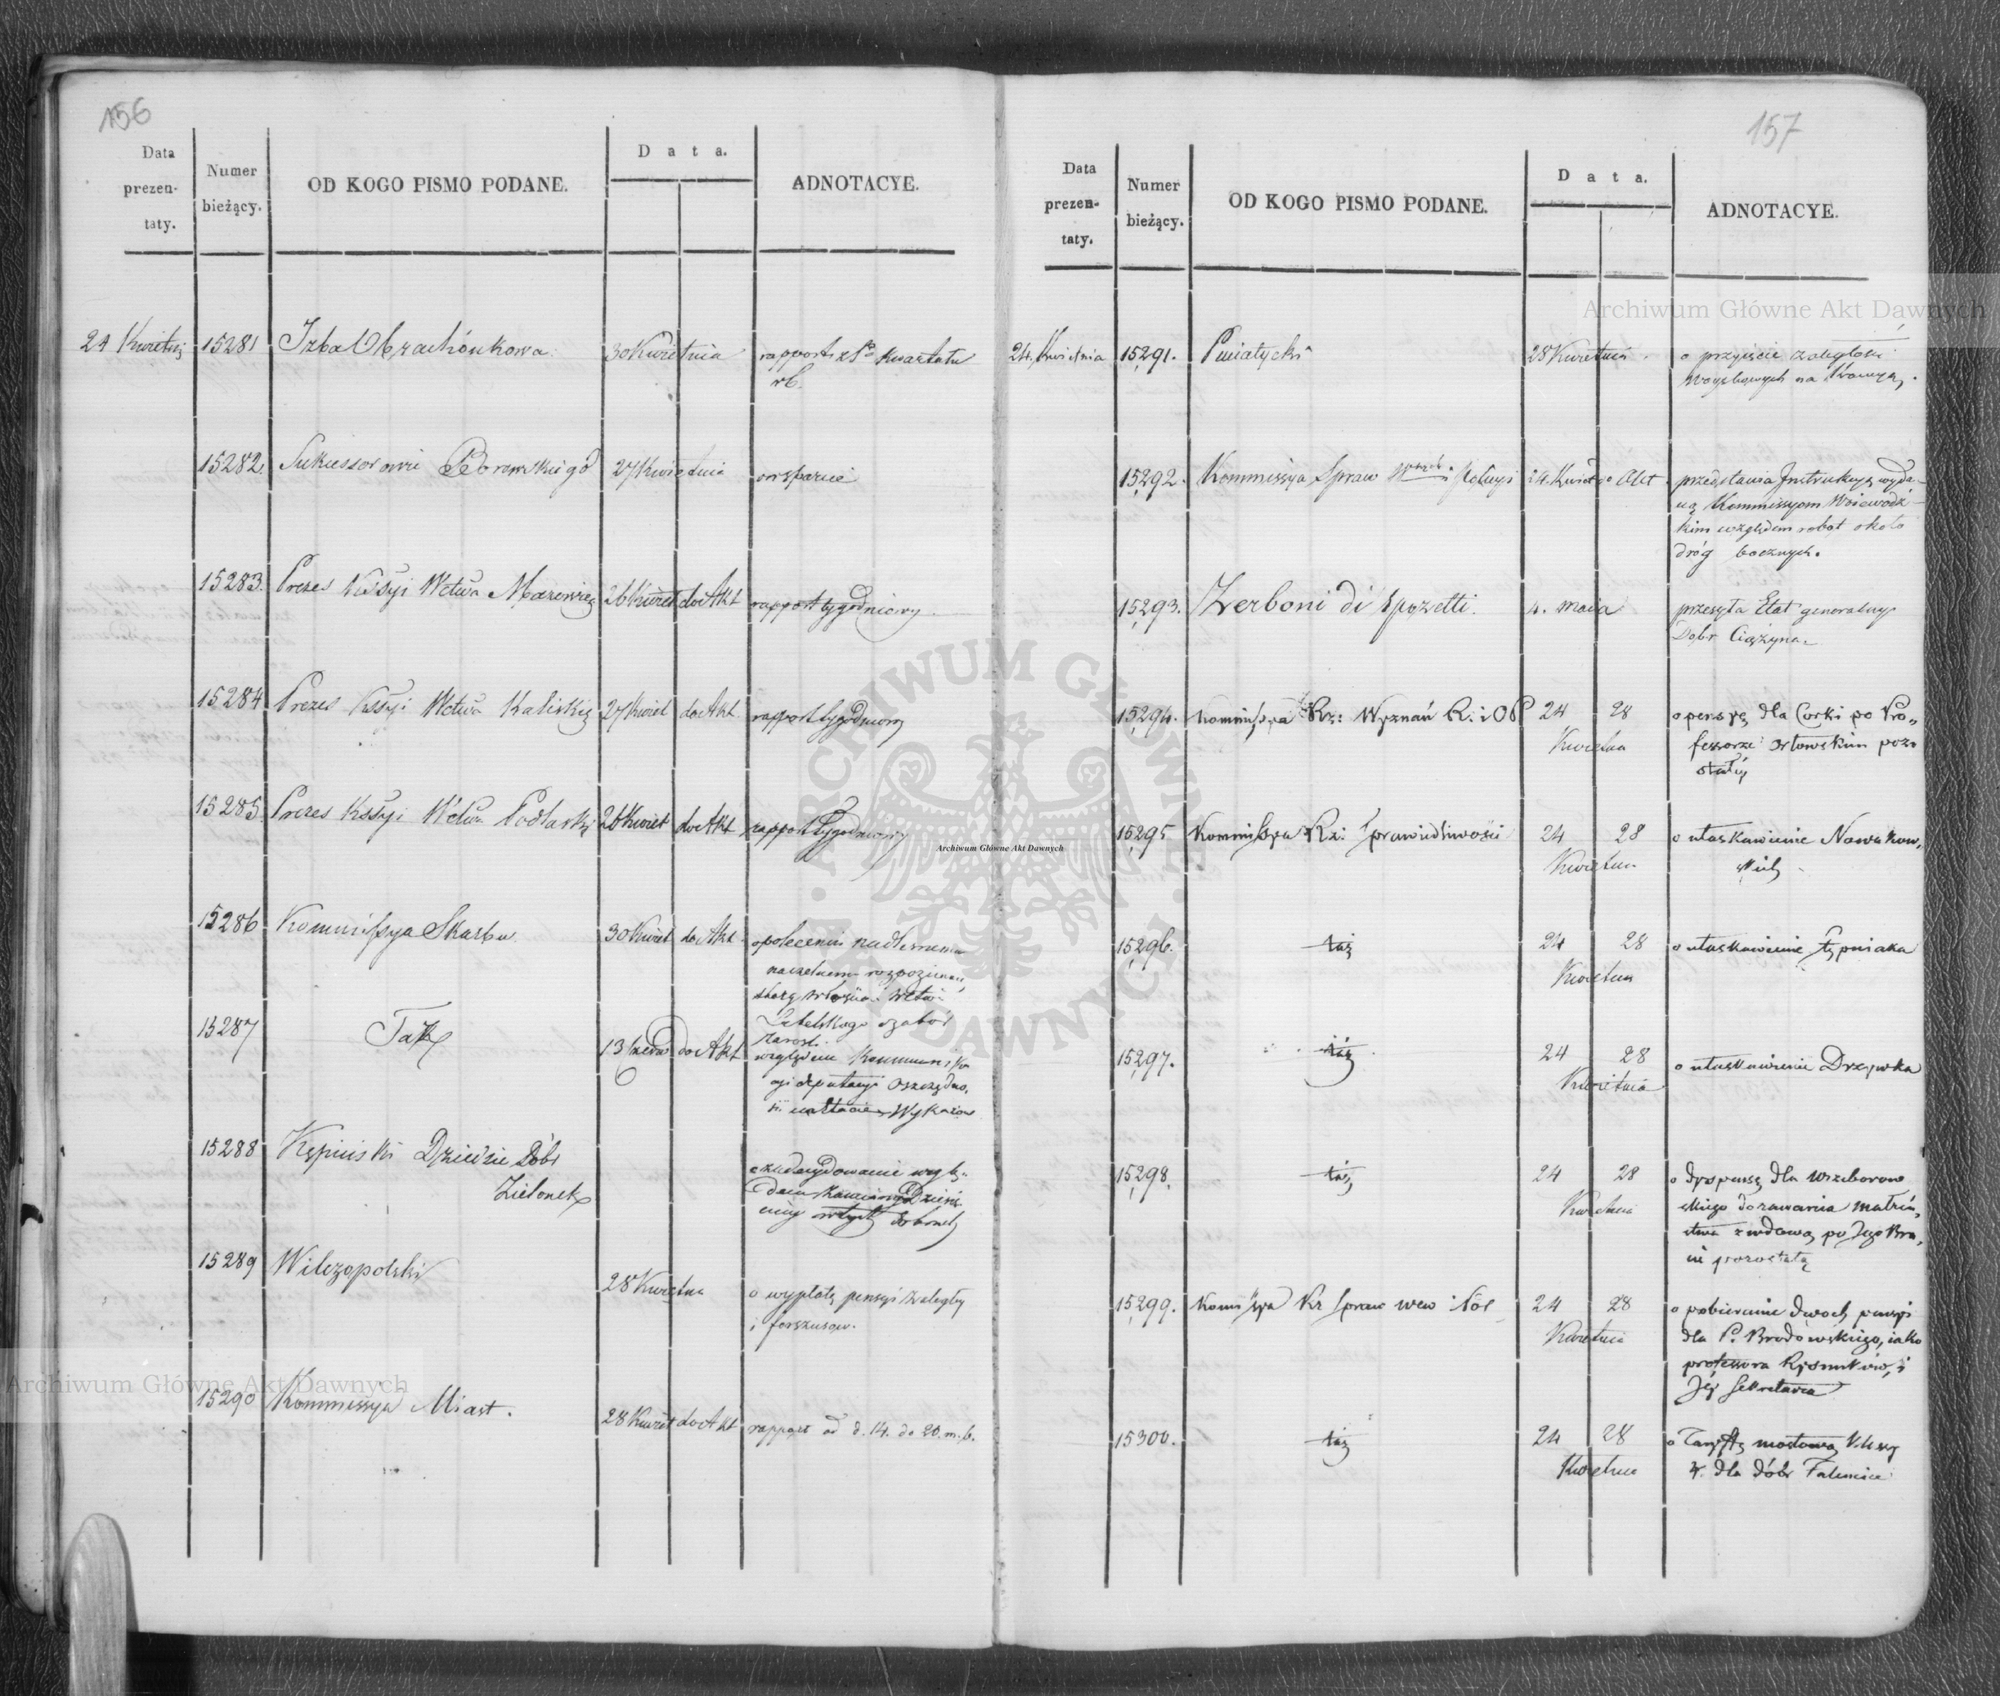 156
Data prezen- taty.
Numer bieżący.
OD KOGO PISMO PODANE.
Data.
ADNOTACYE.
24 Kwietnia 15281 Izba Obrachónkowa 30 Kwietnia rapport z Igo kwartału
rb.
15282. Sukcessorowie Borowskiego 27 Kwietnia o wsparcie
15283. Prezes Kssyi Wctwa Mazowieg 26 Kwiet do Akt rapport tygodniowy.
15284 Prezes Kssyi Wctwa Kaliskieg 27 Kwiet do Akt rapport tygodniowy
15285 Prezes Kssyi Wctwa Podlaski 26 Kwiet do Akt rapport tygodniowy
15286 Kommissya Skarbu 30 Kwiet do Akt o polecenie nadleśnemu
naczelnemu
Wctwa
Lubelskiego
15287 Taż 13 Czerw do Akt
względem
deputacyi Oszczędno,
Wykazów
15288 Kępiński Dziedzic Dóbr
Zielonek
o zadecydowanie wzglę-
dem
15289 Wilczopolski 28 Kwietnia o wypłatę pensyi zaległey
i forszusow.
15290 Kommissya Miast. 28 Kwiet do Akt rapport od d. 14. do 20. m. b.
157
Data prezen- taty.
Numer bieżący.
OD KOGO PISMO PODANE.
Data.
ADNOTACYE.
24. Kwietnia 15291. 28 Kwietnia o przyjęcie zaległości
woyskowych na
15292. Kommissya Spraw Wewn: i Policyi 24. Kwiet do Akt przedstawia Instrukcyą wyda-
ną Kommissyom Woiewódz-
kim względem robot około
dróg bocznych.
15293. Zerboni di Spozetti. 4. maia przesyła Etat generalny
Dóbr Ciążyna.
15294. Kommissya Rz: Wyznań R. i OP 24 28
Kwietnia
o pensyę dla Corki po Pro„
fessorze Orłowskim pozo
stałey
15295 Kommissya Rz: Sprawiedliwości 24 28
Kwietnia
o ułaskawienie Nowakow„
skich
15296. taż 24 28
Kwietnia
o ułaskawienie
15297. taż 24 28
Kwietnia
o ułaskawienie Drzewka
15298. taż 24 28
Kwietnia
o dyspensę dla Wrzeborow
skiego do zawarcia małżeń„
stwa z wdową po Jego Bra„
cie pozostałą
15299. Kommissya Rz Spraw wew i Pol 24 28
Kwietnia
o pobieranie dwoch pensyi
dla P. Brodowskiego, iako
professora Rysunków, i
Jey Sekretarza
15300. taż 24 28
Kwietnia
o Taryffę mostową
dla dóbr Falenice
Archiwum Główne Akt Dawnych
Archiwum Główne Akt Dawnych
Archiwum Główne Akt Dawnych
ARCHIWUM GŁÓWNE AKT DAWNYCH